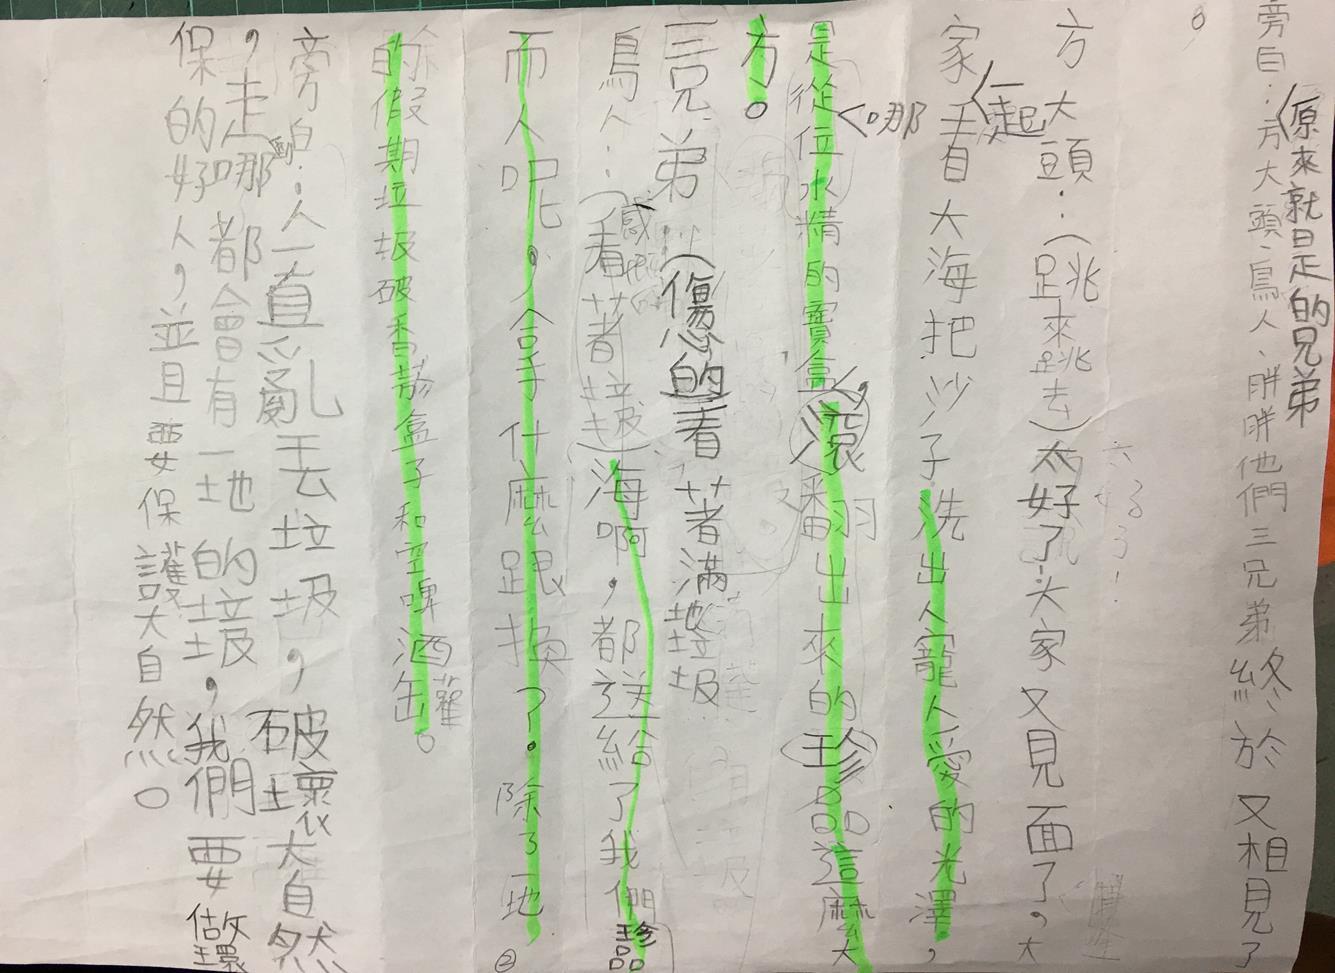 旁白：方大頭、鳥人、胖胖他們三兄弟終於又相見了
原來就是的兄弟
。
方大頭：（跳來跳去）太好了！大家又見面了，大
家一起看大海把沙子洗出人寵人愛的光澤，
是從哪位水精的寶盒，滾翻出來的珍品這麼大
方。
三兄弟：（傷心的看著滿地垃圾
鳥人：（看著垃圾）海啊，都送給了我們珍品
而人呢，拿什麼跟換？除了一地，
的假期垃圾破香菸盒子和空啤酒缶罐。
旁白：人一直亂丟垃圾，破壞大自然
，走到哪都會有一地的垃圾，我們要做環
保的好人，並且要保護大自然。
②